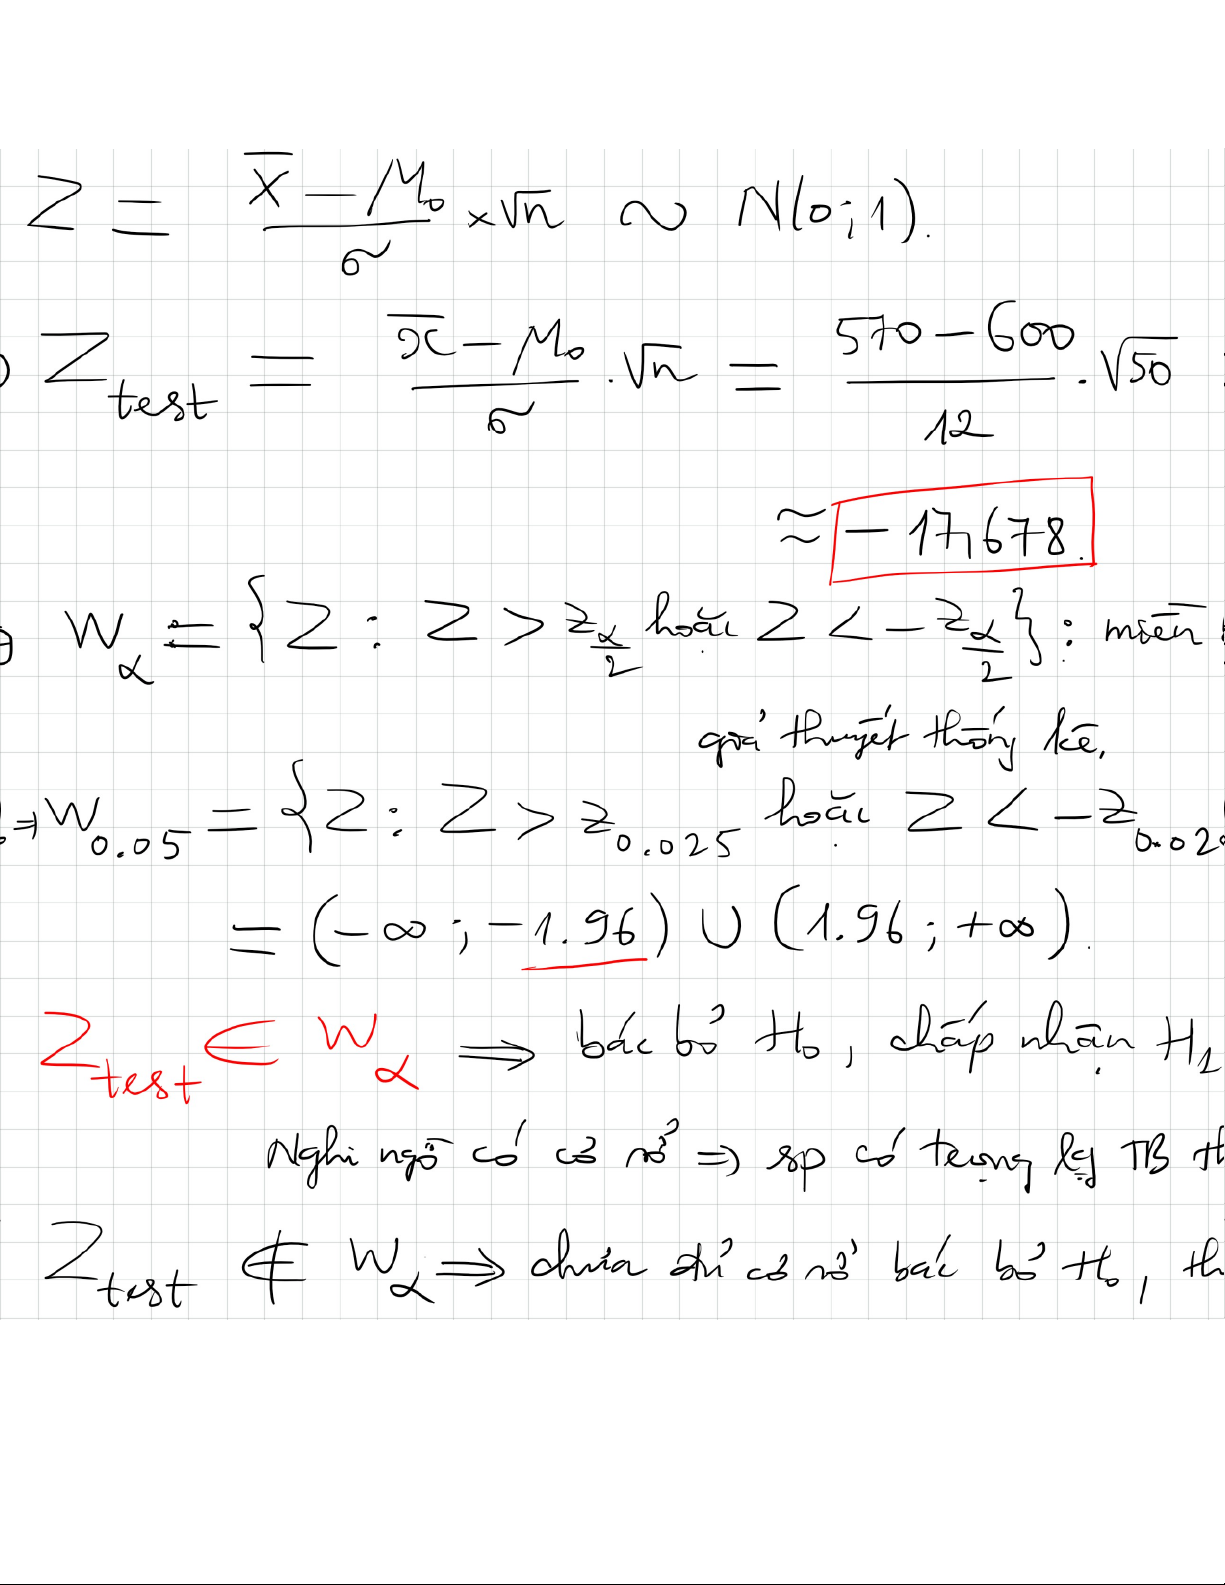 Z = (X̄ - μ₀)/σ × √n ~ N(0;1).
Z_test = (x̄ - μ₀)/σ . √n = (570 - 600)/12 . √50
≈ -17,678.
W_α = {Z : Z > z_{α/2} hoặc Z < -z_{α/2}} : miền
giả thuyết thống kê.
⇒ W_0.05 = {Z : Z > z_0.025 hoặc Z < -z_0.02
= (-∞ ; -1.96) ∪ (1.96 ; +∞).
Z_test ∈ W_α ⇒ bác bỏ H₀, chấp nhận H₁
Nghi ngờ có cơ sở ⇒ sp có trọng lg TB
Z_test ∉ W_α ⇒ chưa đủ cơ sở bác bỏ H₀, th